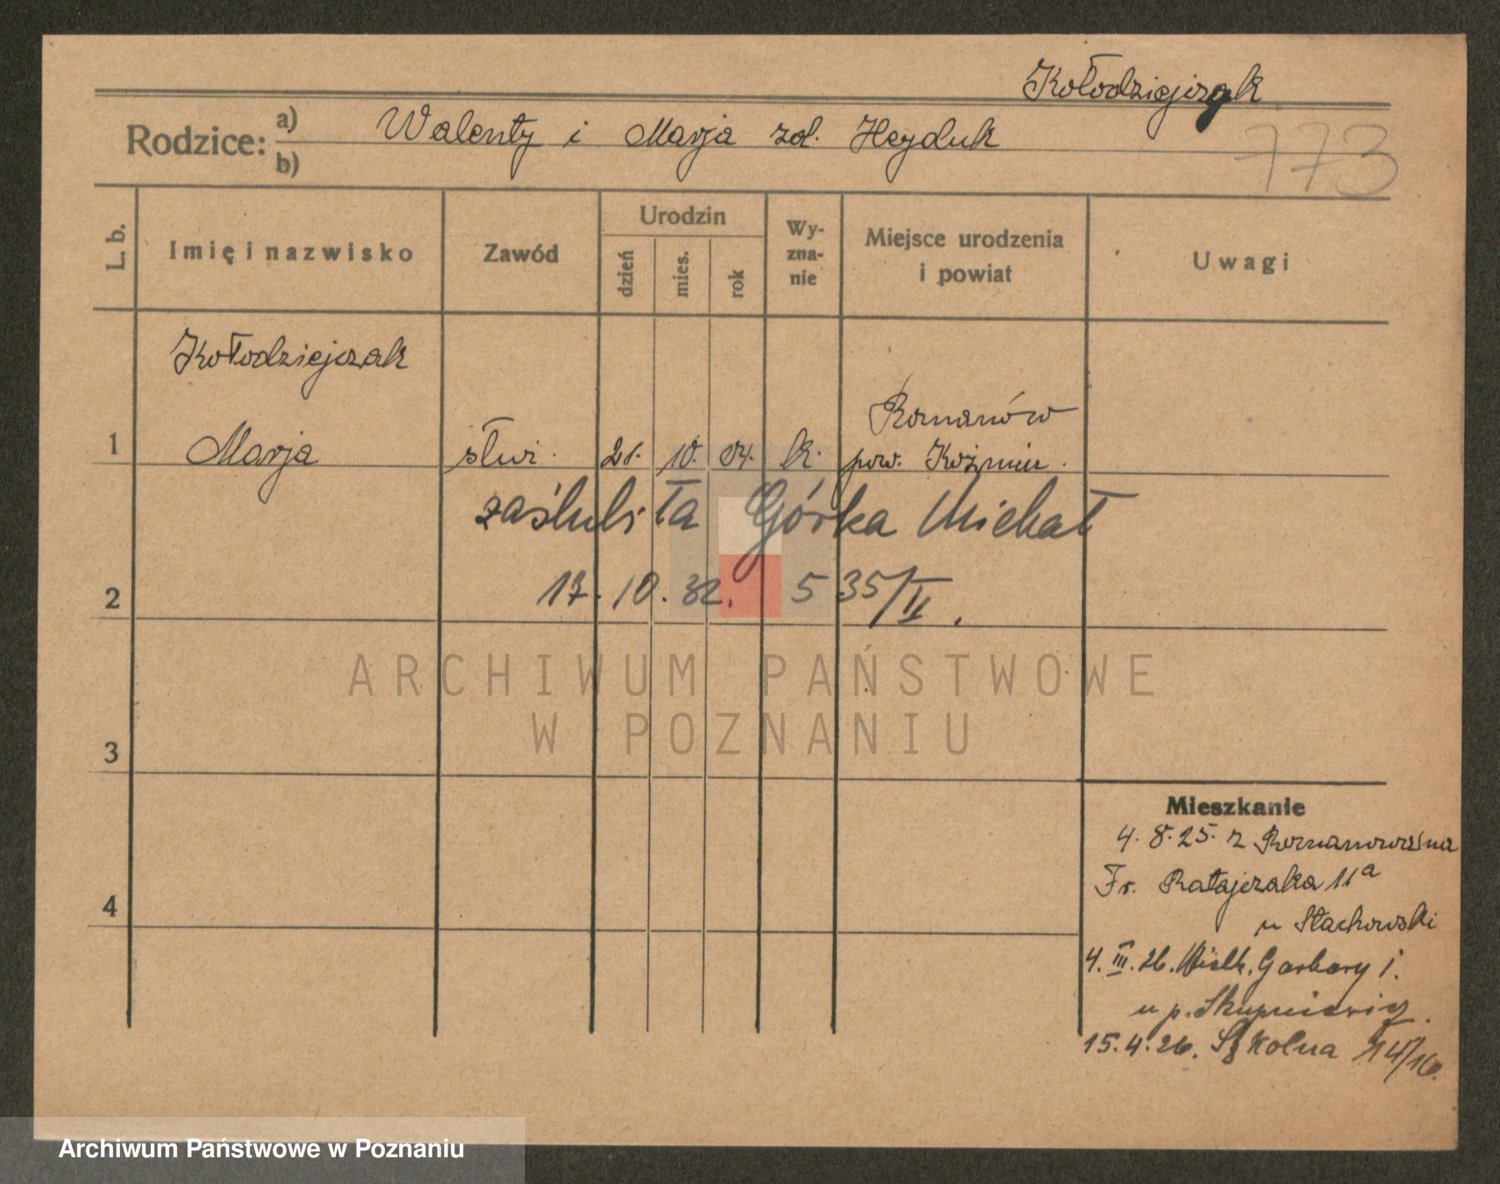 Kołodziejczak
Rodzice: a) Walenty i Marja zd. Heyduk
b)
773
L. b.
Imię i nazwisko
Zawód
Urodzin
dzień
mies.
rok
Wy-
zna-
nie
Miejsce urodzenia
i powiat
Uwagi
Kołodziejczak
Romanów
1 Marja służ. 21. 10. 04. k. pow. Koźmin.
zaślubiła Górka Michał
2 17. 10. 32. 535/II.
ARCHIWUM PAŃSTWOWE
W POZNANIU
3
4
Mieszkanie
4. 8. 25. z Romanowa na
Fr. Ratajczaka 11a
u Stachowski
4. III. 26. Wielk. Garbary 1.
u p.
15. 4. 26. Szkolna 14/16.
Archiwum Państwowe w Poznaniu